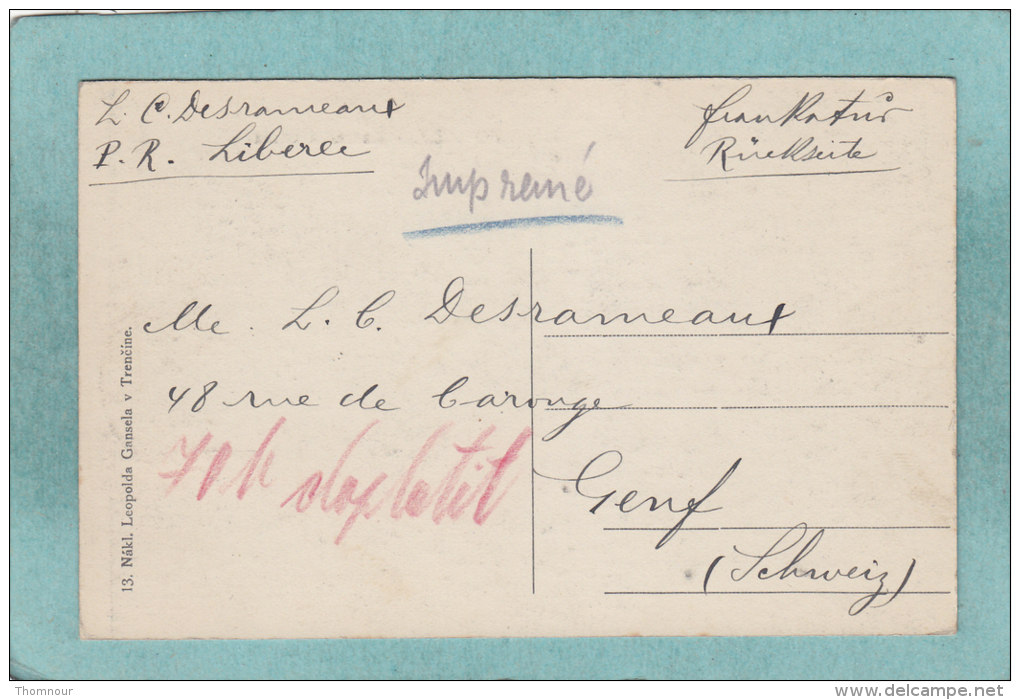 L. C. Desrameaux
P. R. Liberec
frankatur
Rückseite
Imprimé
Me. L. C. Desrameaux
48 rue de Carouge
doplatit
Genf
(Schweiz)
13. Nákl. Leopolda Gansela v Trenčíne.
Thomnour
www.delcampe.net